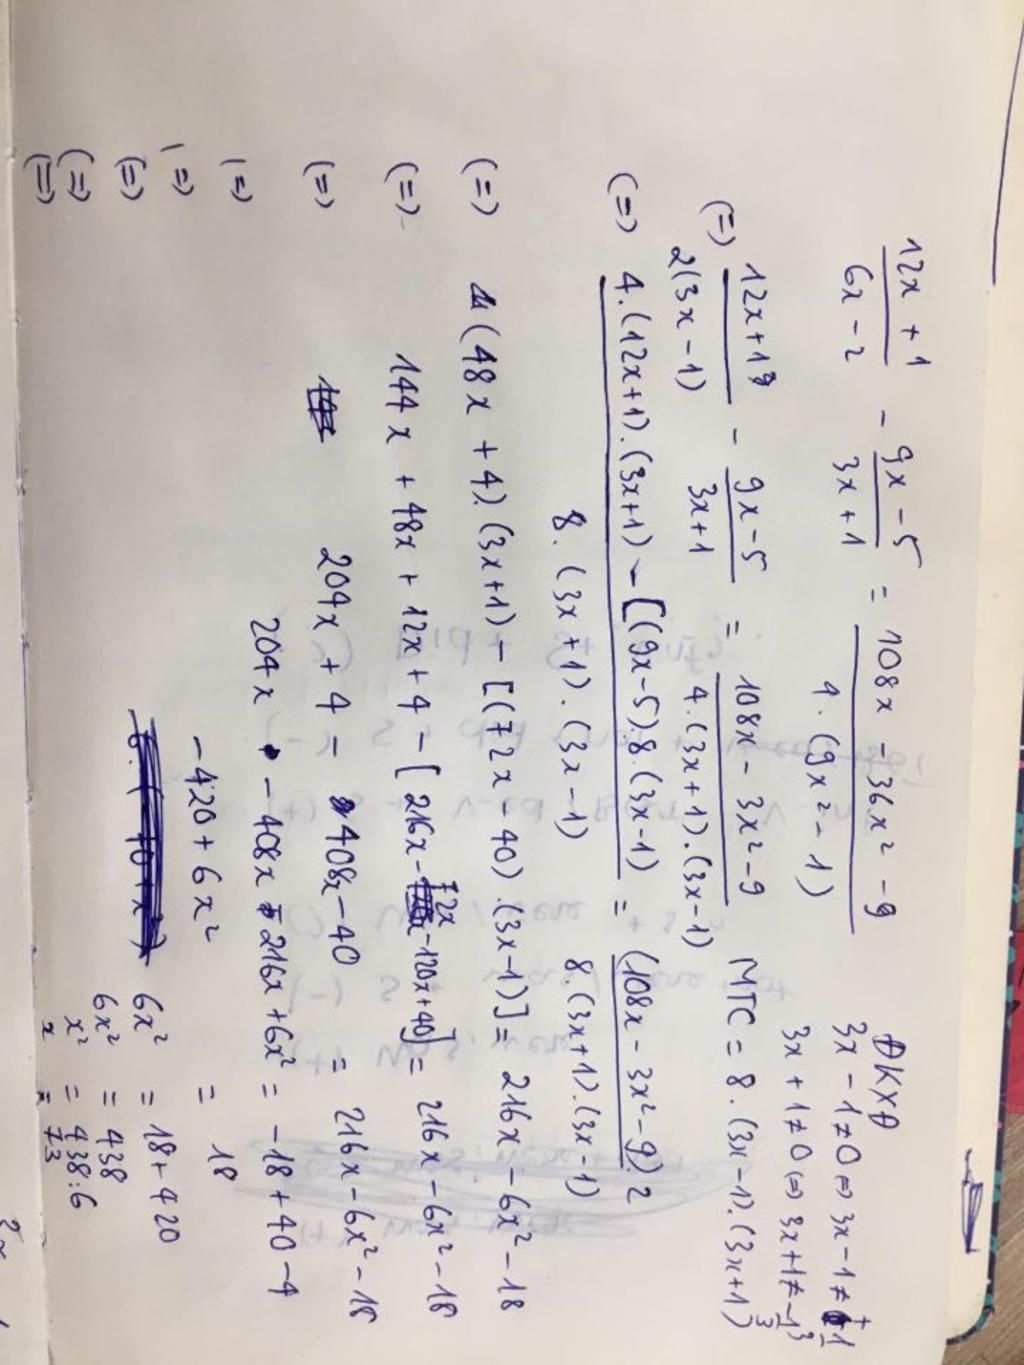 12x + 1 / 6x - 2 - 9x - 5 / 3x + 1 = 108x - 36x² - 9 / 4.(9x² - 1)
ĐKXĐ
3x - 1 ≠ 0 (=) 3x - 1 ≠
3x + 1 ≠ 0 (=) 3x + 1 ≠ -1/3
(=) 12x + 1 / 2(3x - 1) - 9x - 5 / 3x + 1 = 108x - 3x² - 9 / 4.(3x + 1).(3x - 1)
MTC = 8.(3x - 1).(3x + 1)
(=) 4.(12x + 1).(3x + 1) - [(9x - 5).8.(3x - 1) / 8.(3x + 1).(3x - 1) = (108x - 3x² - 9).2 / 8.(3x + 1).(3x - 1)
(=) (48x + 4).(3x + 1) - [(72x - 40).(3x - 1)] = 216x - 6x² - 18
(=) 144x + 48x + 12x + 4 - [216x - 72x - 120x + 40] = 216x - 6x² - 18
(=) 204x + 4 = 408x - 40 = 216x - 6x² - 18
(=) 204x - 408x - 216x + 6x² = -18 + 40 - 4
(=) -420 + 6x² = 18
(=) 6x² = 18 + 420
(=) 6x² = 438
(=) x² = 438 : 6
x = 73